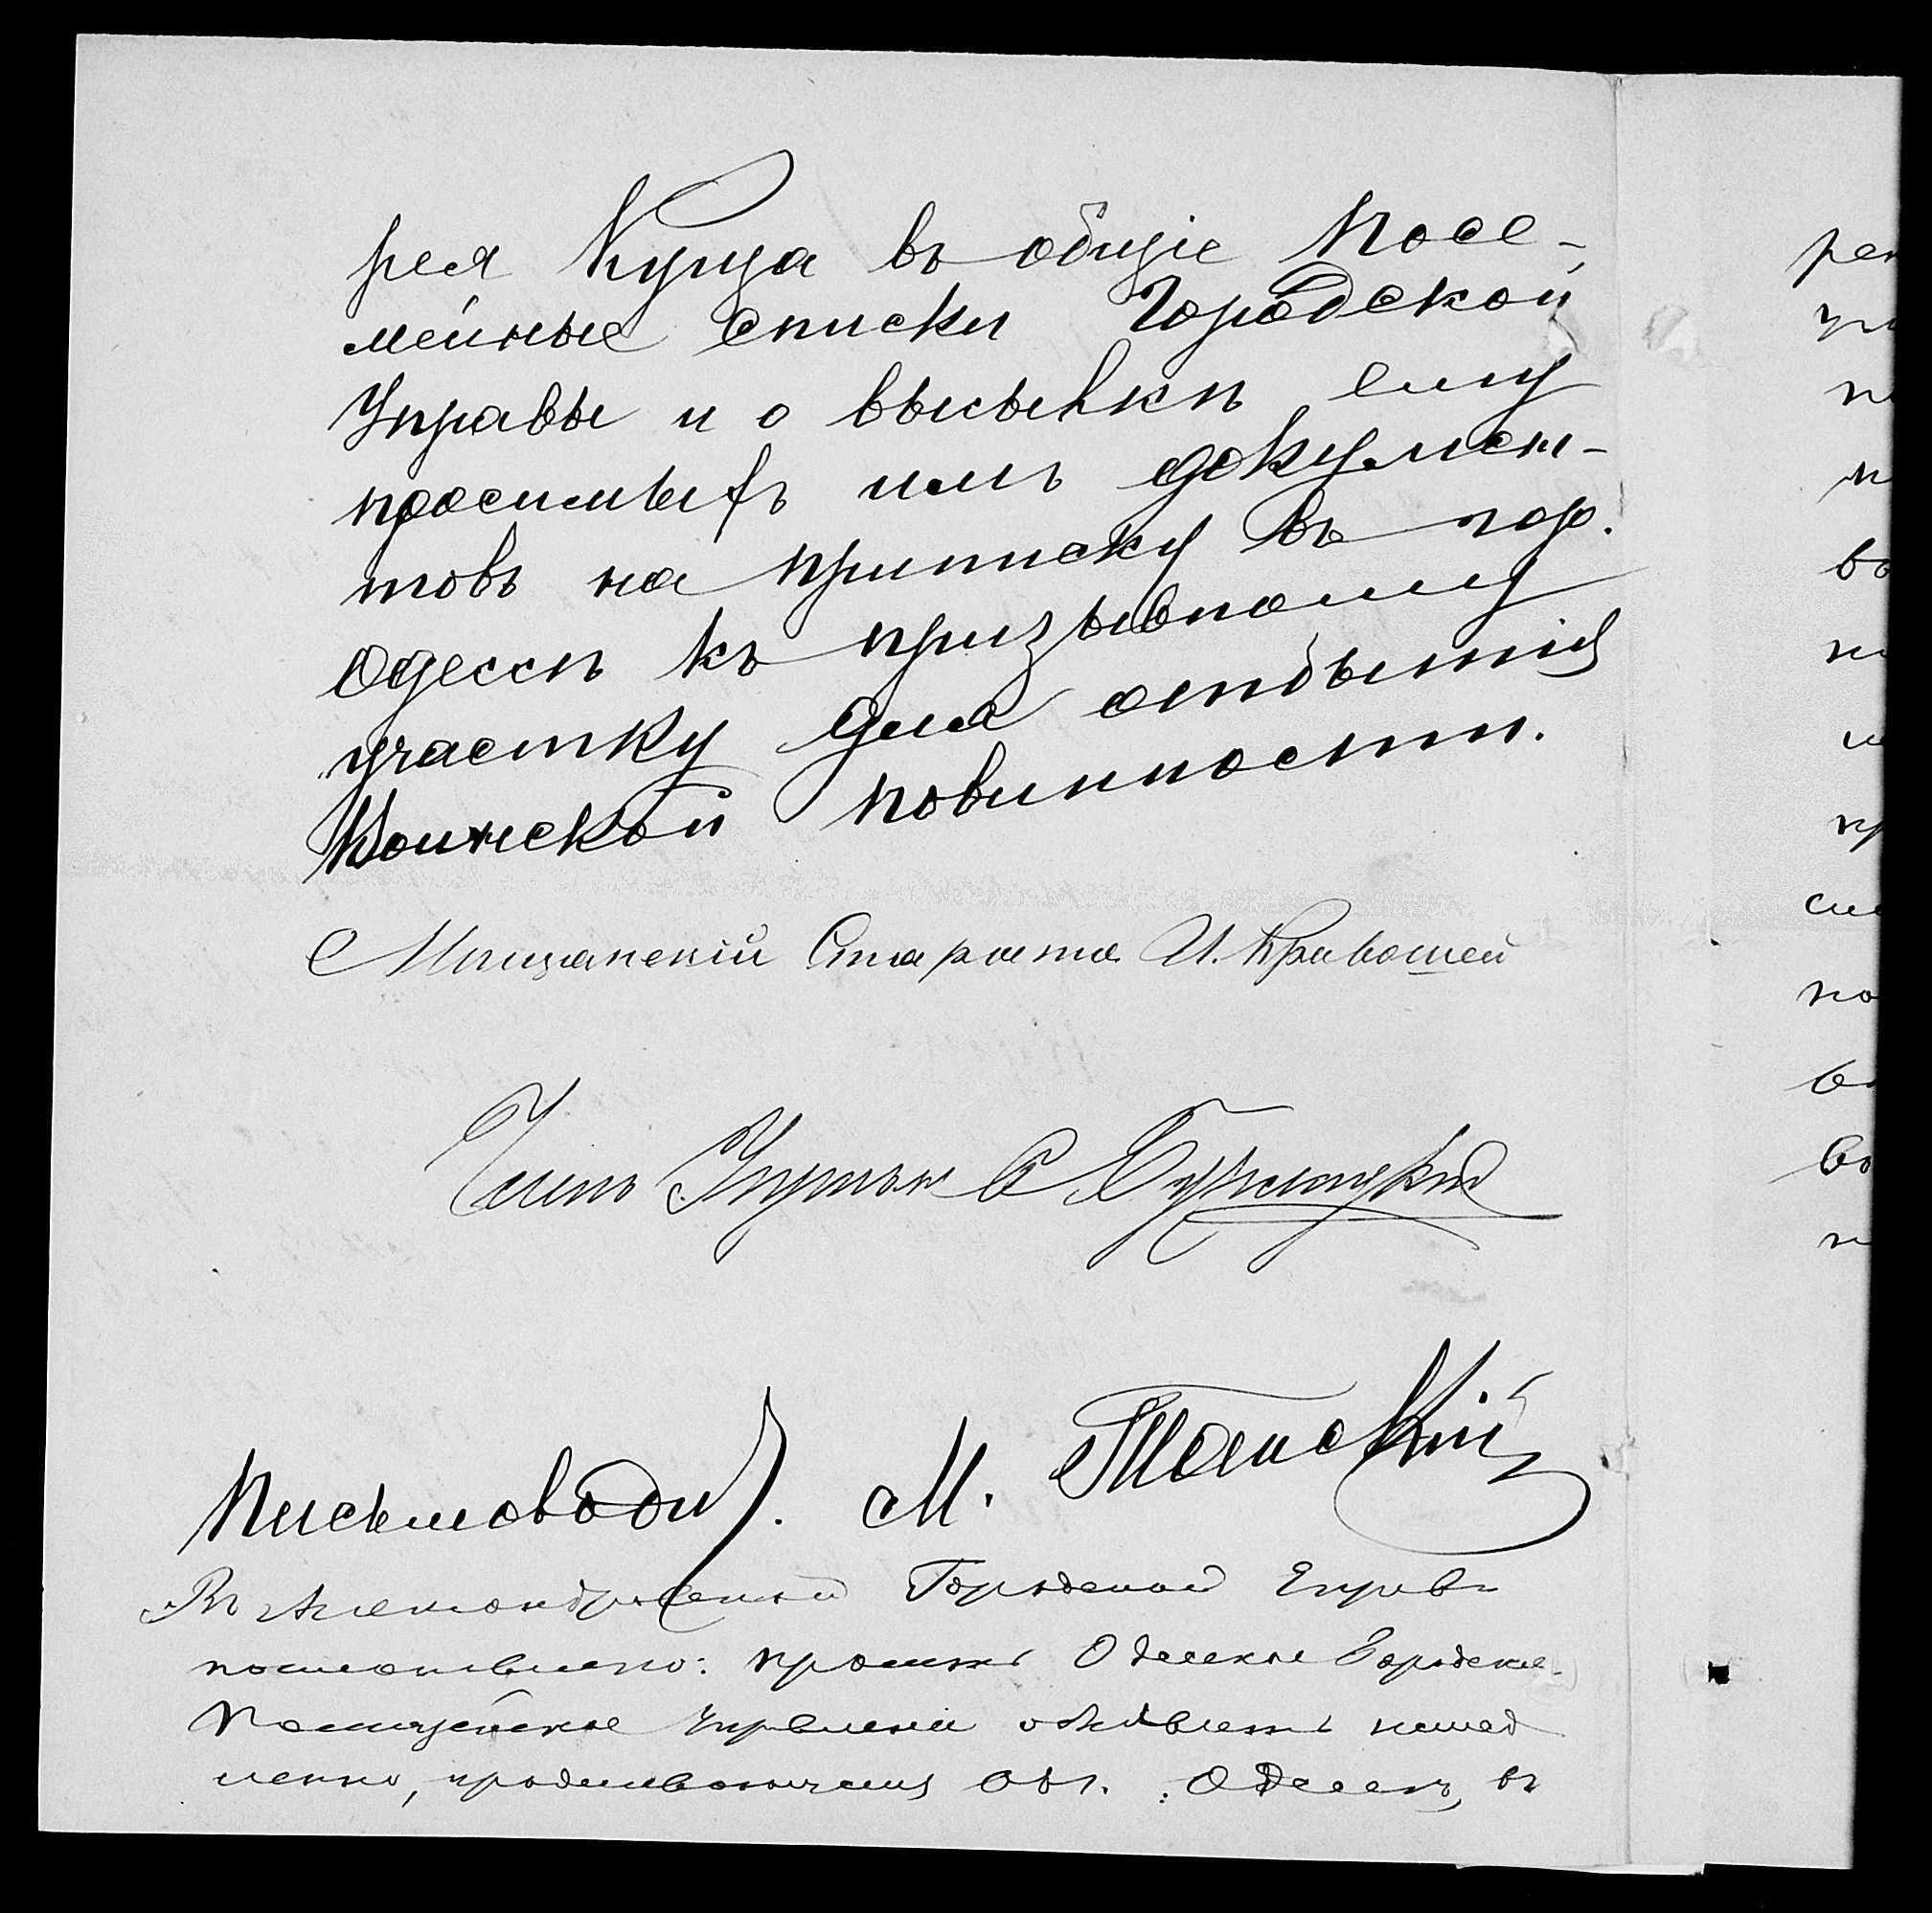 рея Куща въ общіе посе-
мейные списки Городской
Управы и о высылкѣ ему
просимыхъ имъ докумен-
товъ на приписку въ гор.
Одессѣ къ призывному
участку для отбытія
Воинской повинности.
Мѣщанскій Староста И. Кривошей
Членъ Управы
Письмоводи. М. Таиский
Въ Александровской Городской Управѣ
постановлено: просить Одесское Городское
Полицейское Управленіе объявить немед
ленно, проживающему въ г. Одессѣ, въ
рея